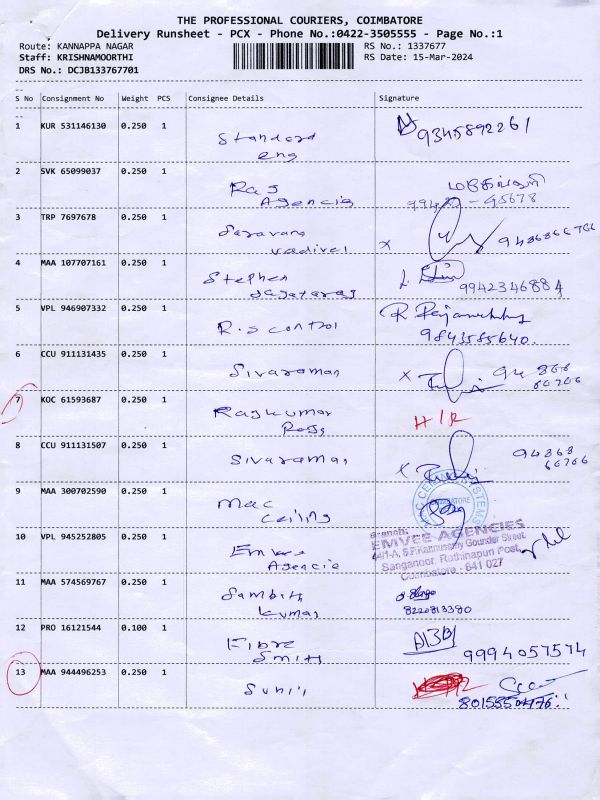 THE PROFESSIONAL COURIERS, COIMBATORE
Delivery Runsheet - PCX - Phone No.:0422-3505555 - Page No.:1
Route: KANNAPPA NAGAR RS No.: 1337677
Staff: KRISHNAMOORTHI RS Date: 15-Mar-2024
DRS No.: DCJB133767701
S No Consignment No Weight PCS Consignee Details Signature
1 KUR 531146130 0.250 1 Standard eng 9345892261
2 SVK 65099037 0.250 1 Raj Agencie
3 TRP 7697678 0.250 1 Saravana vadivel x
4 MAA 107707161 0.250 1 Stephen 9942346884
5 VPL 946907332 0.250 1 R.s control R. 9843585640.
6 CCU 911131435 0.250 1 Sivaraman x
7 KOC 61593687 0.250 1 Rajkumar
8 CCU 911131507 0.250 1 Sivaraman x
9 MAA 300702590 0.250 1 Mac Ceiling
10 VPL 945252805 0.250 1 Emvee Agencie
EMVEE AGENCIES
44/1-A, S.P. Kannusamy Gounder Street,
Sanganoor, Rathinapuri Post,
Coimbatore - 641 027
11 MAA 574569767 0.250 1 kumar 8220813380
12 PRO 16121544 0.100 1 Fibre Smith 9994057574
13 MAA 944496253 0.250 1 Sunil